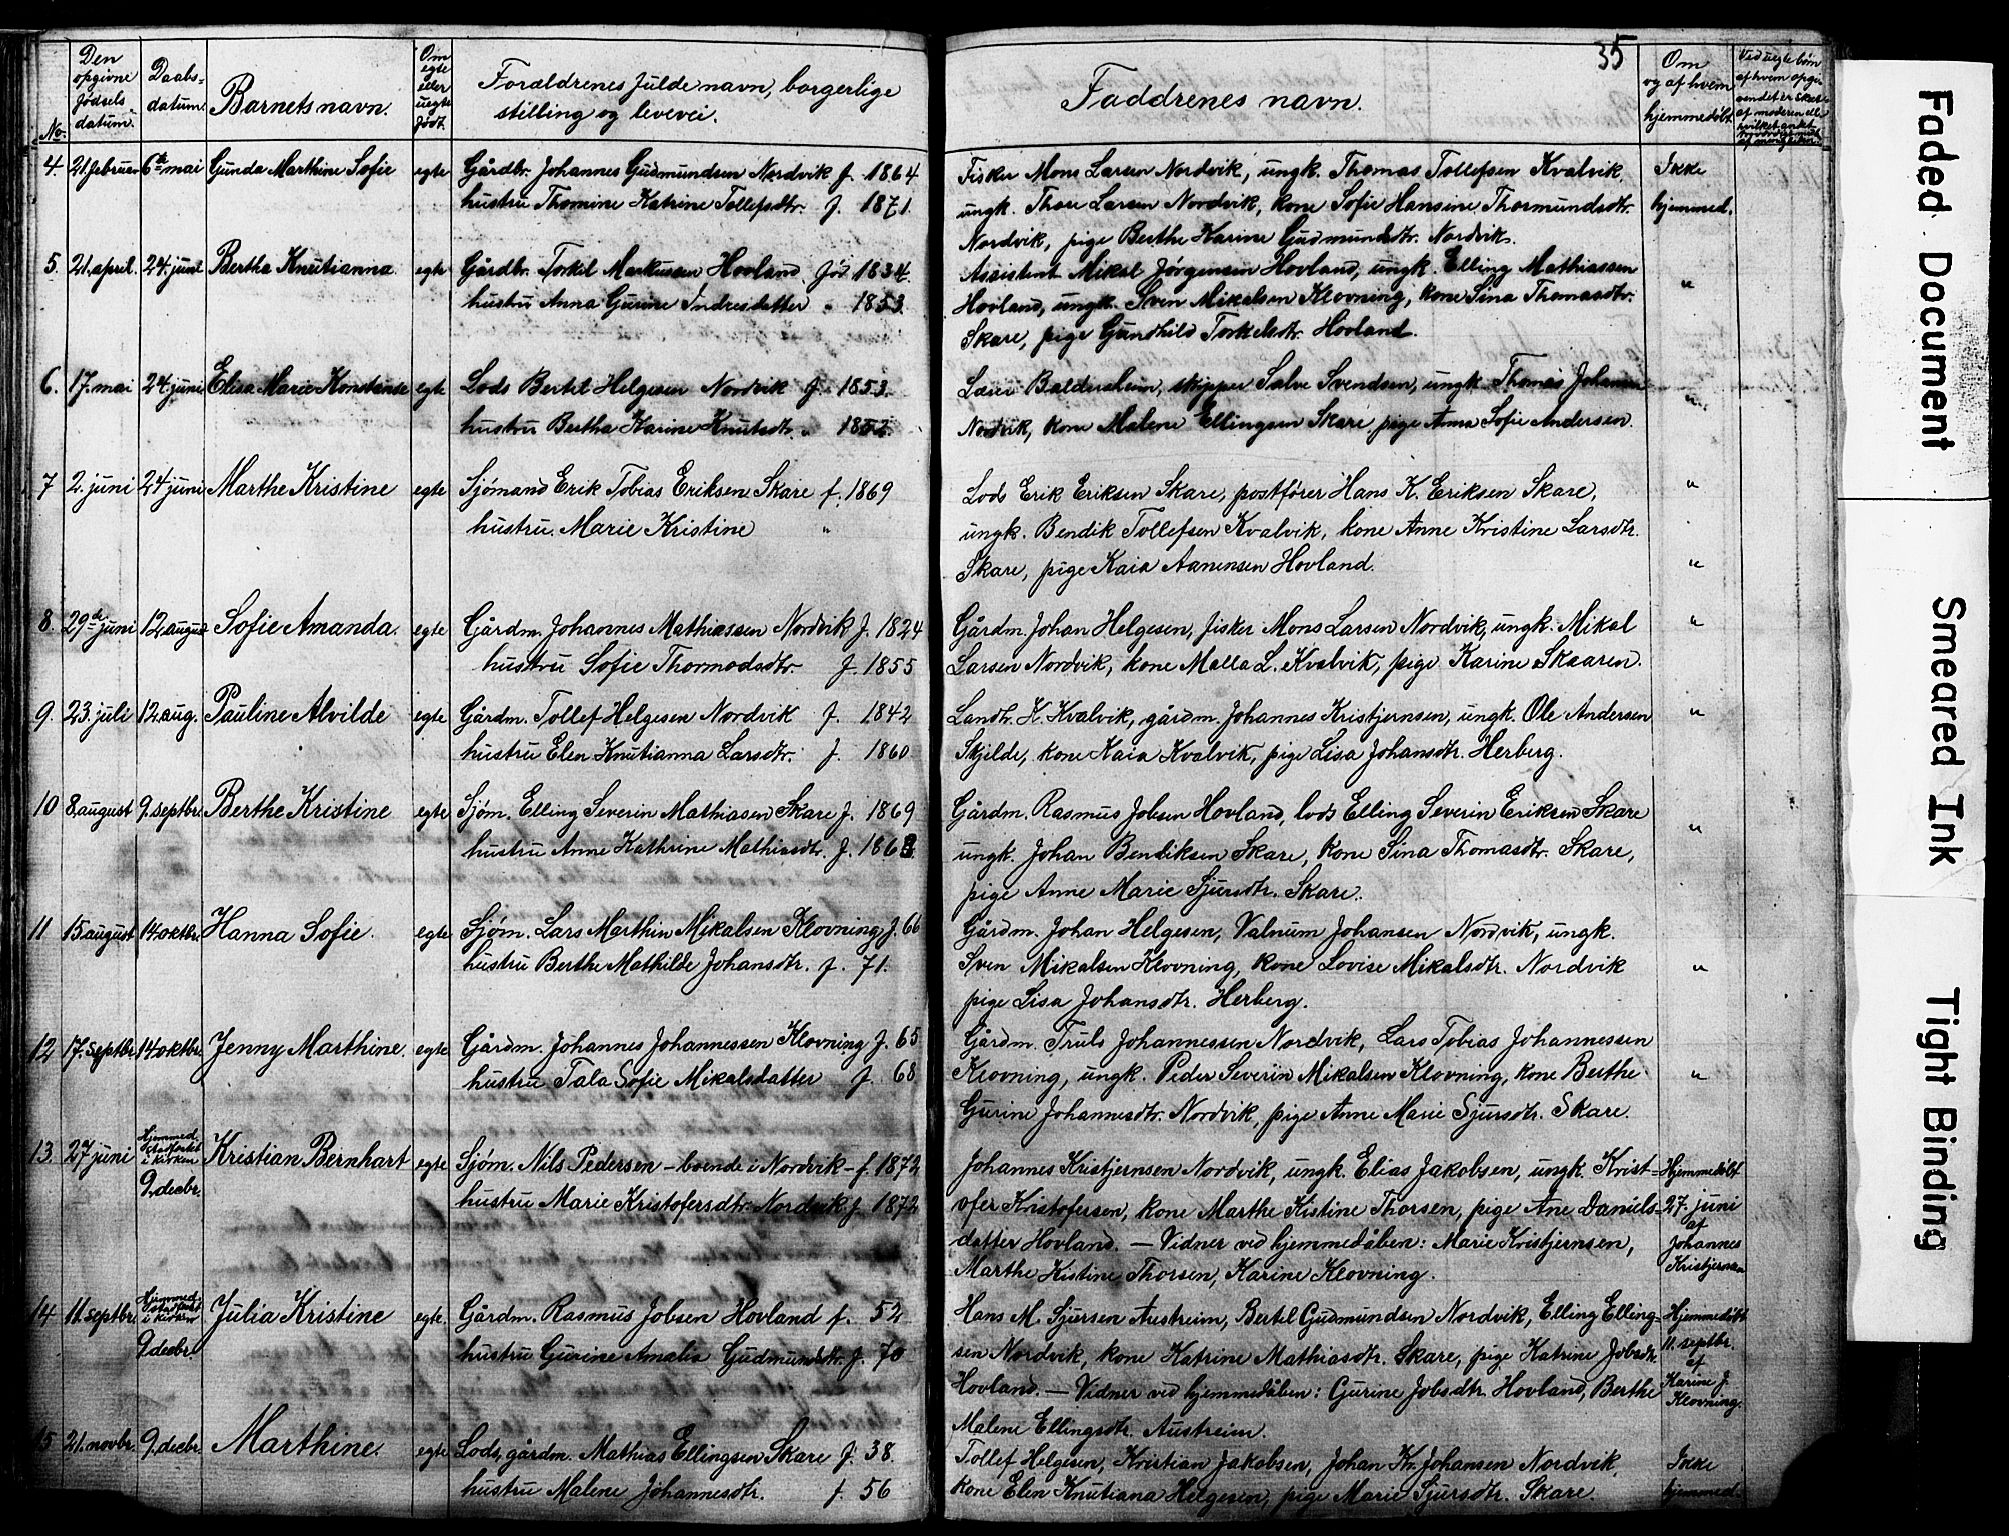 35
No.
Den opgivne fødsels datum.
Daabs-datum.
Barnets navn.
Om egte eller uegte født.
Forældrenes fulde navn, borgerlige
stilling og levevei.
Faddrenes navn.
Om
og af hvem
hjemmedøbt
Ved uegte børn
af hvem opgi-
4. 21. februar 6te mai Gunda Marthine Sofie egte Gårdbr. Johannes Gudmundsen Nordvik f. 1864 Fisker Mons Larsen Nordvik, ungk. Thomas Tollefsen Kvalvik, Ikke
hustru Thomine Katrine Tollefsdtr. f. 1871. ungk. Thore Larsen Nordvik, kone Sofie Hansine Thormundsdtr. hjemmed.
Nordvik, pige Berthe Karine Gudmundsdtr. Nordvik.
5. 21. april. 24. juni Bertha Knutianna egte Gårdbr. Torkel Markussen Hovland fød 1834. Assistent Mikal Jørgensen Hovland, ungk. Elling Mathiassen
hustru Anna Gurine Indresdatter " 1853. Hovland, ungk. Sven Mikalsen Klovning, kone Sina Thomasdtr. "
Skare, pige Gundhild Torkelsdtr. Hovland.
6. 17. mai 24. juni Elisa Marie Konstanse egte Lods Bertel Helgesen Nordvik f. 1853. Lærer Baldersheim, skipper Salve Svendsen, ungk. Thomas Johannes "
hustru Bertha Karine Knutsdtr. " 1852. Nordvik, kone Malene Ellingsen Skare, pige Anna Sofie Andersen.
7 2. juni 24 juni Marthe Kristine egte Sjømand Erik Tobias Eriksen Skare f. 1869 Lods Erik Eriksen Skare, postfører Hans K. Eriksen Skare, "
hustru Marie Kristine " ungk. Bendik Tollefsen Kvalvik, kone Anne Kristine Larsdtr.
Skare, pige Kaia Aanensen Hovland. "
8. 29de juni 12. august Sofie Amanda. egte Gårdm. Johannes Mathiassen Nordvik f. 1824 Gårdm. Johan Helgesen, fisker Mons Larsen Nordvik, ungk. Mikal "
hustru Sofie Thormodsdtr. f. 1855 Larsen Nordvik, kone Malla L. Kvalvik, pige Karine Skaaren.
9. 23. juli 12. aug. Pauline Alvilde egte Gårdm. Tollef Helgesen Nordvik f. 1842 Landh. K. Kvalvik, gårdm. Johannes Kristjernsen, ungk. Ole Andersen "
hustru Elen Knutianna Larsdtr. f. 1860 Skjilde, kone Kaia Kvalvik, pige Lisa Johansdtr. Herberg.
10 8. august 9. septbr. Berthe Kristine egte Sjøm. Elling Severin Mathiasen Skare f. 1869 Gårdm. Rasmus Jobsen Hovland, lods Elling Severin Eriksen Skare
hustru Anne Kathrine Mathiasdtr. f. 1868. ungk. Johan Bendiksen Skare, kone Sina Thomasdtr. Skare, "
pige Anne Marie Sjursdtr. Skare.
11 15 august 14 oktbr. Hanna Sofie. egte Sjøm. Lars Marthin Mikalsen Klovning f. 66 Gårdm. Johan Helgesen, Valnum Johansen Nordvik, ungk.
hustru Berthe Mathilde Johansdtr. f. 71. Sven Mikalsen Klovning, kone Lovise Mikalsdtr. Nordvik "
pige Lisa Johansdtr. Herberg.
12 17. septbr. 14 oktbr. Jenny Marthine. egte Gårdm. Johannes Johannessen Klovning f. 65 Gårdm. Truls Johannessen Nordvik, Lars Tobias Johannessen
hustru Tala Sofie Mikalsdatter f. 68 Klovning, ungk. Peder Severin Mikalsen Klovning, kone Berthe "
Gurine Johannesdtr. Nordvik, pige Anne Marie Sjursdtr. Skare.
13. 27 juni Hjemmed. stadfestet i kirken 9. decbr. Kristian Bernhart egte Sjøm. Nils Pedersen - boende i Nordvik - f. 1872 Johannes Kristjernsen Nordvik, ungk. Elias Jakobsen, ungk. Krist- Hjemmedøbt
hustru Marie Kristofersdtr. Nordvik f. 1872 ofer Kristofersen, kone Marthe Kistine Thorsen, pige Ane Daniels- 27. juni
datter Hovland. - Vidner ved hjemmedåben: Marie Kristjernsen, af Johannes
Marthe Kistine Thorsen, Karine Klovning. Kristjernsen
14 11. septbr. Hjemmed. stadfestet i kirken 9 decbr. Julia Kristine egte Gårdm. Rasmus Jobsen Hovland f. 52 Hans M. Sjursen Austreim, Bertel Gudmundsen Nordvik, Elling Elling- Hjemmedøbt
hustru Gurine Amalia Gudmundsdtr. f. 70 sen Nordvik, kone Katrine Mathiasdtr. Skare, pige Katrine Jobsdtr. 11. septbr.
Hovland. - Vidner ved hjemmedåben: Gurine Jobsdtr. Hovland, Berthe af Karine J.
Malene Ellingsdtr. Austreim. Klovning.
15 21. novbr. 9. decbr. Marthine. egte Lods, gårdm. Mathias Ellingsen Skare f. 38. Tollef Helgesen, Kristian Jakobsen, Johan Kn. Johansen Nordvik, Ikke
hustru Malene Johannesdtr. f. 56 kone Elen Knutiana Helgesen, pige Marie Sjursdtr. Skare. hjemmed.
Faded Document
Smeared Ink
Tight Binding